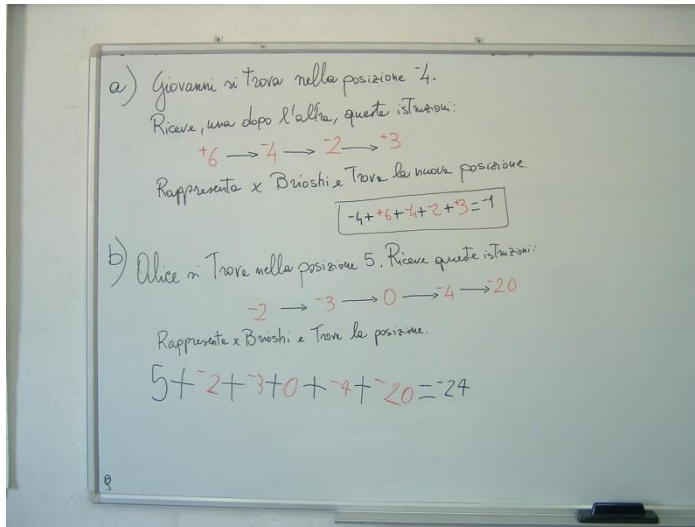 a) Giovanni si trova nella posizione ⁻4.
Riceve, una dopo l'altra, queste istruzioni:
⁺6 → ⁻4 → ⁻2 → ⁺3
Rappresenta x Brioshi e Trova la nuova posizione.
⁻4+⁺6+⁻4+⁻2+⁺3=⁻1
b) Alice si Trova nella posizione 5. Riceve queste istruzioni:
⁻2 → ⁻3 → 0 → ⁻4 → ⁻20
Rappresenta x Brioshi e Trova la posizione.
5+⁻2+⁻3+0+⁻4+⁻20=⁻24